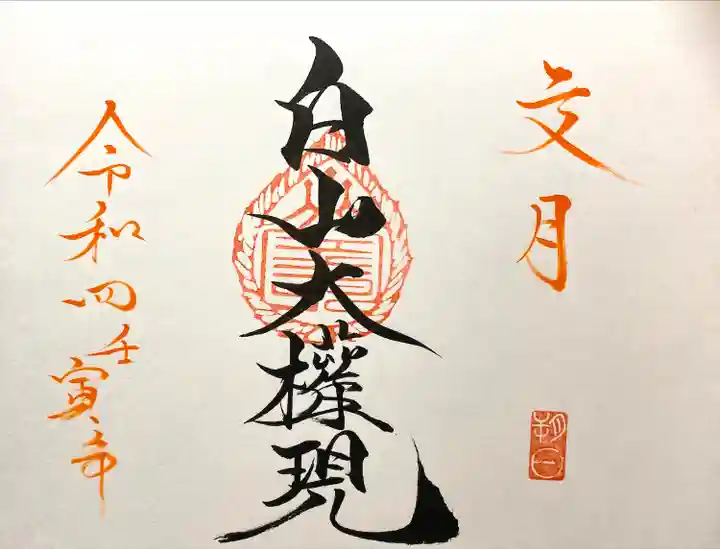 文月
白山大権現
令和四壬寅年